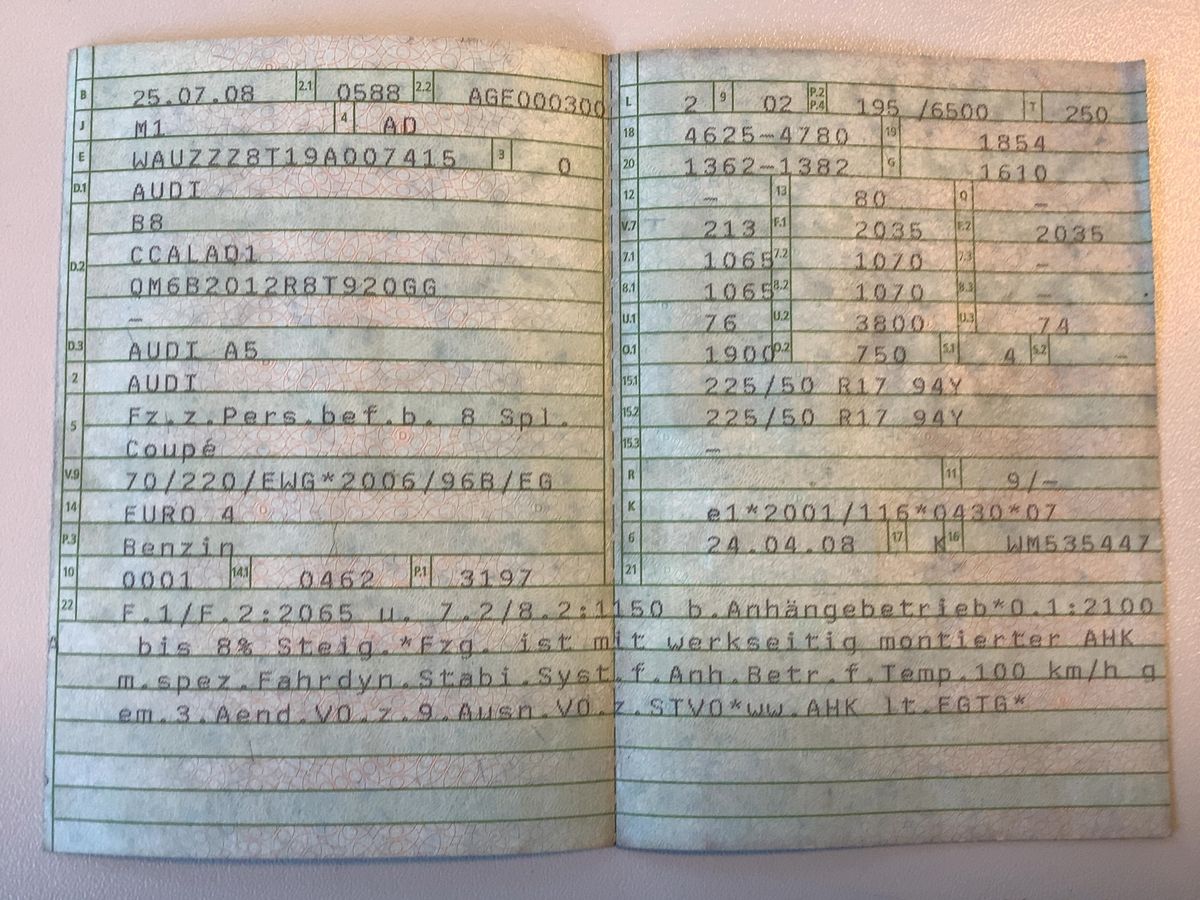 B 25.07.08 2.1 0588 2.2 AGE000300
J M1 4 AD
E WAUZZZ8T19A007415 3 0
D.1 AUDI
B8
D.2 CCALAD1
QM6B2012R8T920GG
–
D.3 AUDI A5
2 AUDI
5 Fz.z.Pers.bef.b. 8 Spl.
Coupé
V.9 70/220/EWG*2006/96B/EG
14 EURO 4
P.3 Benzin
10 0001 14.1 0462 P.1 3197
L 2 9 02 P.2 P.4 195 /6500 T 250
18 4625–4780 19 1854
20 1362–1382 G 1610
12 – 13 80 Q –
V.7 213 F.1 2035 F.2 2035
7.1 1065 7.2 1070 7.3 –
8.1 1065 8.2 1070 8.3 –
U.1 76 U.2 3800 U.3 74
O.1 1900 O.2 750 S.1 4 S.2 –
15.1 225/50 R17 94Y
15.2 225/50 R17 94Y
15.3 –
R 11 9/–
K e1*2001/116*0430*07
6 24.04.08 17 K 16 WM535447
21
22 F.1/F.2:2065 u. 7.2/8.2:1150 b.Anhängebetrieb*O.1:2100
A bis 8% Steig.*Fzg. ist mit werkseitig montierter AHK
m.spez.Fahrdyn.Stabi.Syst.f.Anh.Betr.f.Temp.100 km/h g
em.3.Aend.VO.z.9.Ausn.VO.z.STVO*ww.AHK lt.EGTG*